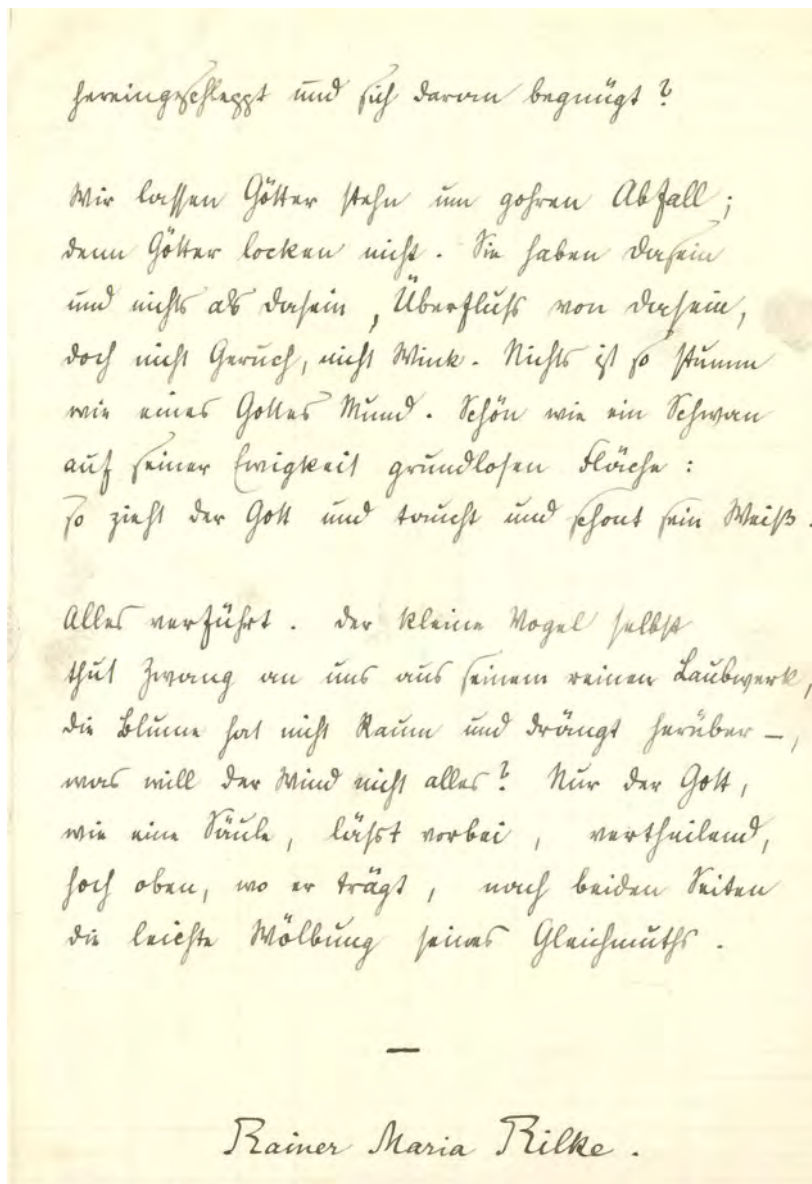 hereingeschleppt und sich daran begnügt?
Wir lassen Götter stehn um gohren Abfall;
denn Götter locken nicht. Sie haben Dasein
und nichts als Dasein, Überfluss von Dasein,
doch nicht Geruch, nicht Wink. Nichts ist so stumm
wie eines Gottes Mund. Schön wie ein Schwan
auf seiner Ewigkeit grundlosen Fläche:
so zieht der Gott und taucht und schont sein Weiß.
Alles verführt. Der kleine Vogel selbst
thut Zwang an uns aus seinem reinen Laubwerk,
die Blume hat nicht Raum und drängt herüber –,
was will der Wind nicht alles? Nur der Gott,
wie eine Säule, lässt vorbei, vertheilend,
hoch oben, wo er trägt, nach beiden Seiten
die leichte Wölbung seines Gleichmuths.
—
Rainer Maria Rilke.